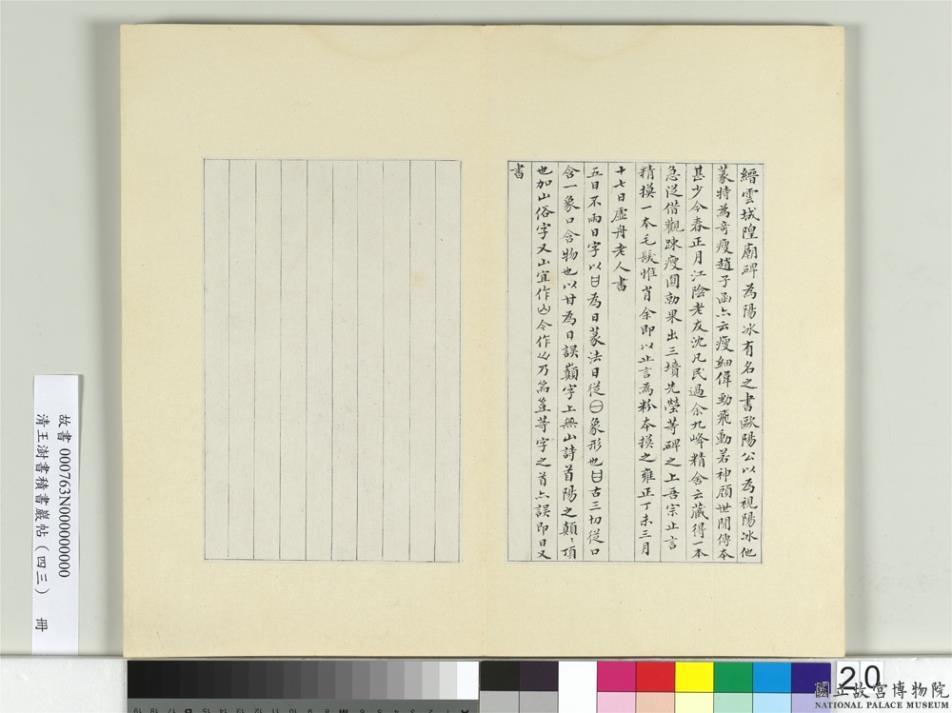 縉雲城隍廟碑為陽冰有名之書歐陽公以為視陽冰他
篆特為奇瘦趙子函亦云瘦細偉勁飛動若神顧世間傳本
甚少今春正月江陰老友沈凡民過余九峰精舍云藏得一本
急從借觀踈瘦圓勁果出三墳先塋等碑之上吾宗止言
精摸一本毛髮惟肖余即以止言為粉本摸之雍正丁未三月
十七日虛舟老人書
五日不雨日字以甘為日篆法日從㊀象形也甘古三切從口
含一象口含物也以甘為日誤巔字上無山詩首陽之顛顛頂
也加山俗字又山宜作山今作乃芻豈等字之首亦誤即日又
書
故書 000763N000000000
清王澍書積書巖帖（四三） 冊
20
國立故宮博物院
NATIONAL PALACE MUSEUM